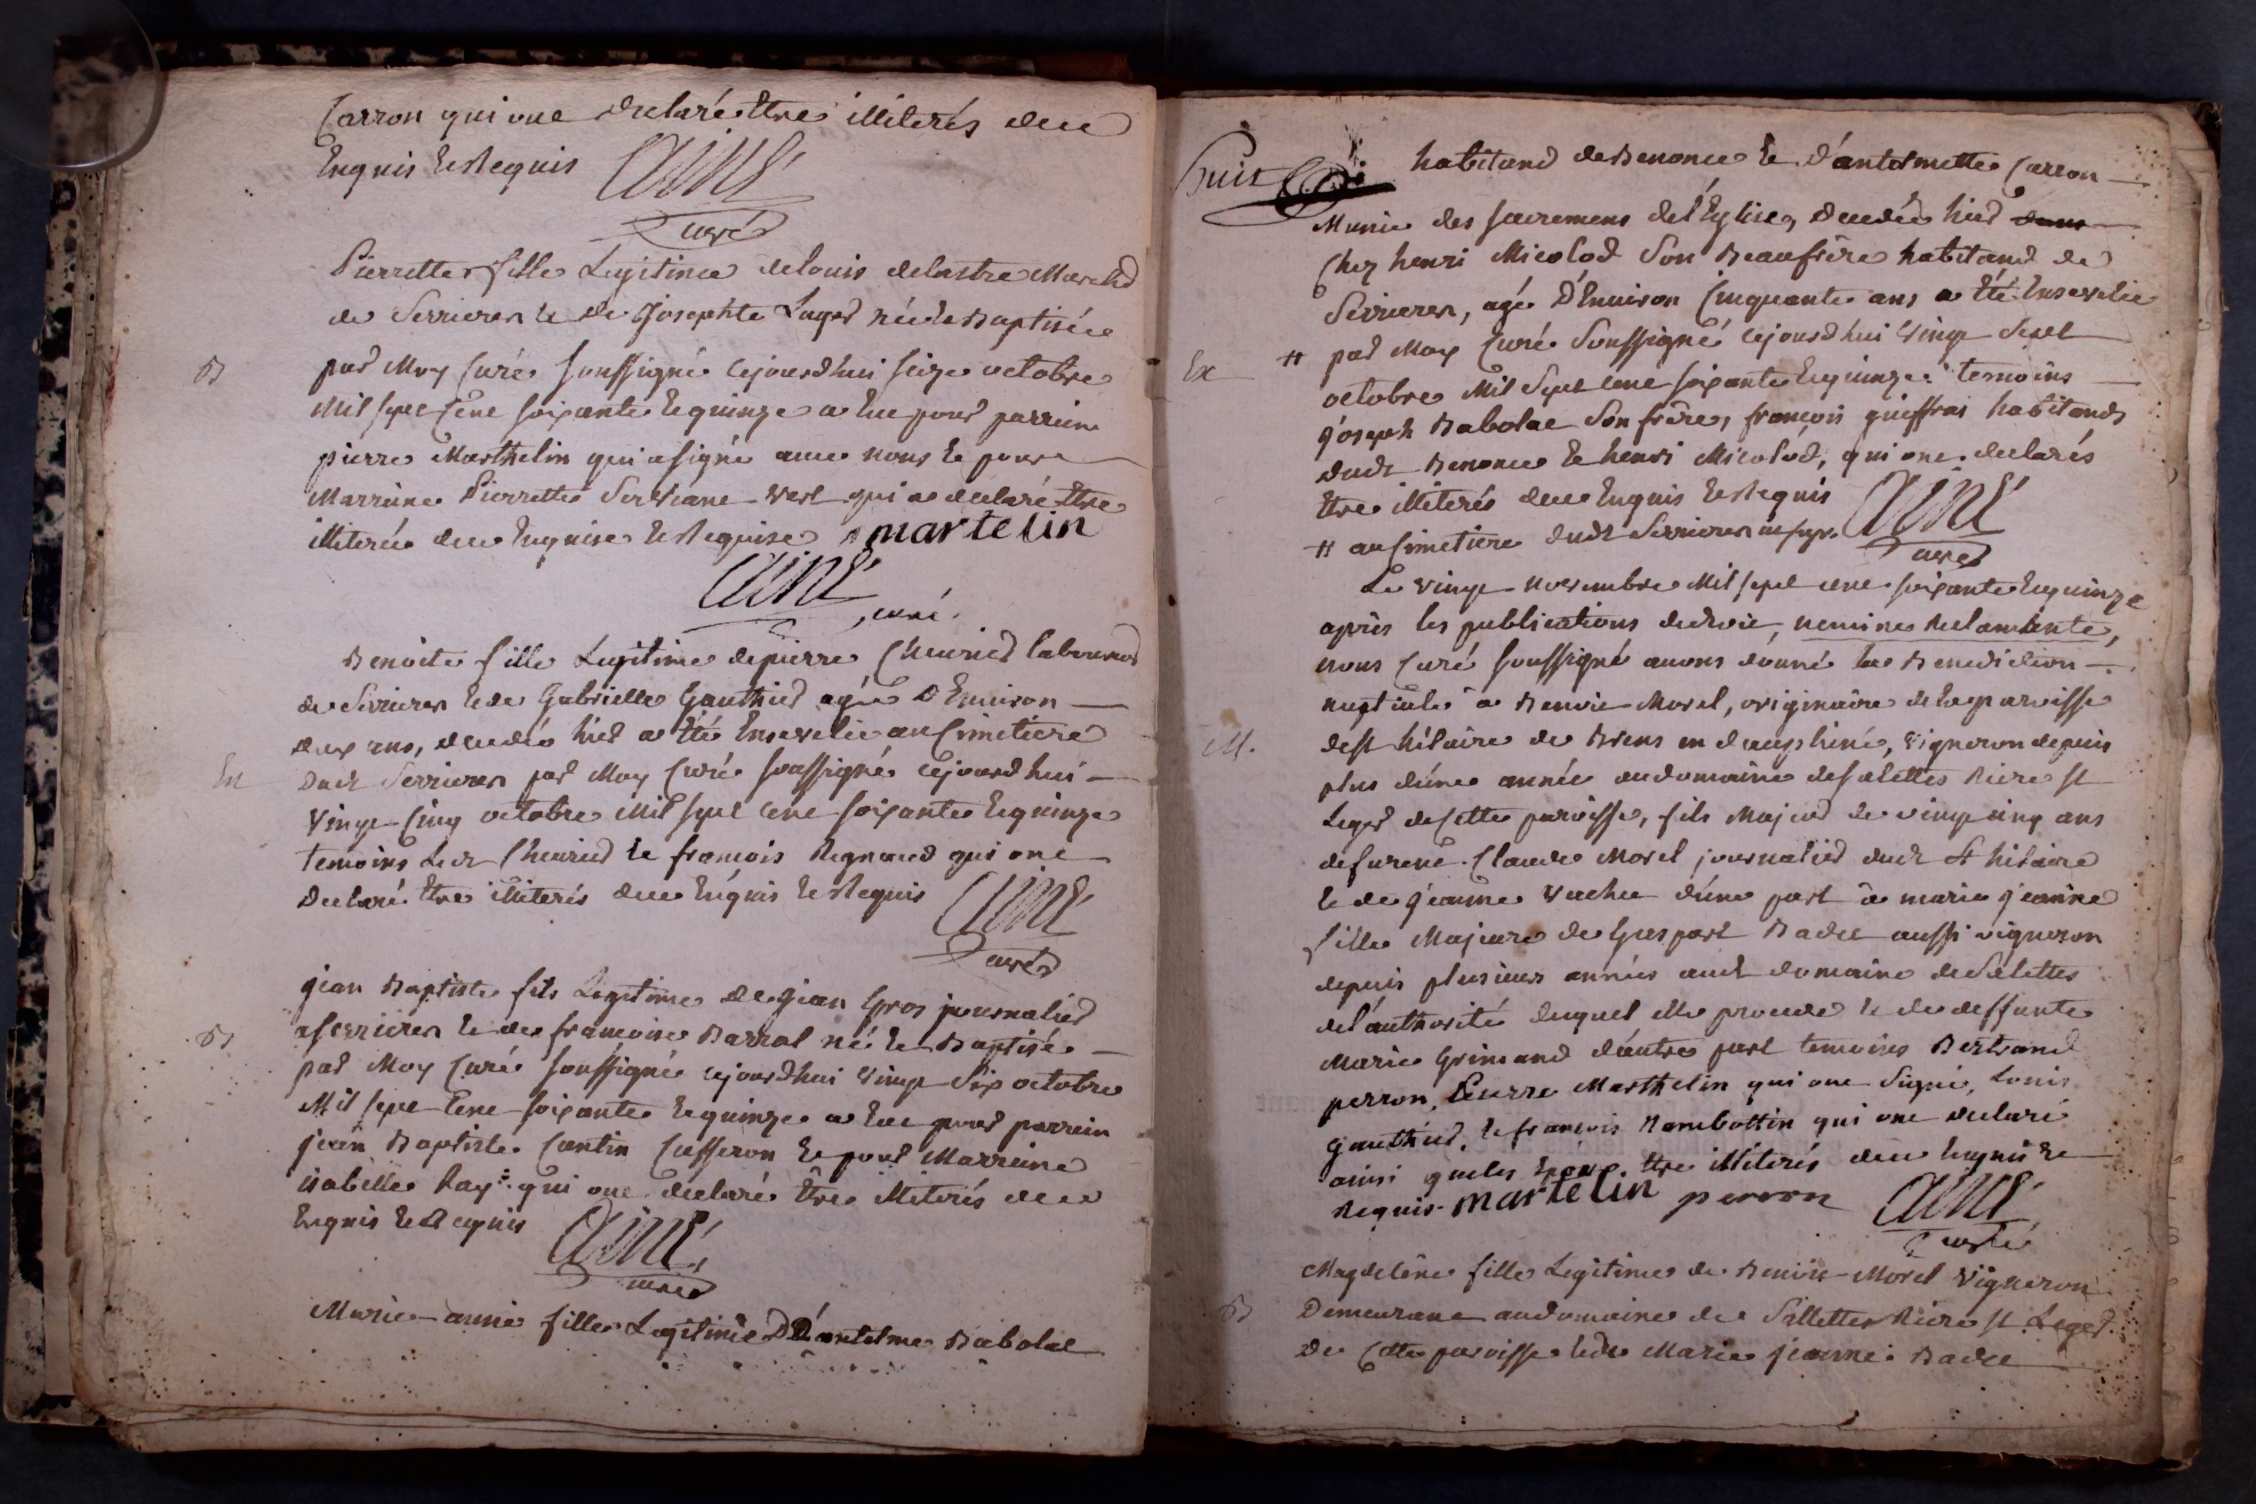 Carron qui ont declaré être illiterés deüe
Enquis et Requis Cuiné
curé
Pierrette fille Legitime de louis delastre March.d
de Serrieres et de Josephte Luger née et Baptisée
B
par Moy Curé soussigné cejourd'hui seize octobre
Mil sept cent soixante et quinze a eu pour parrein
pierre Marthelin qui a signé avec nous et pour
Marreine Pierrette qui a declaré être
illiterée deüe Enquise et Requise martelin
curé
Benoite fille Legitime de pierre Cheurier laboureur
de Serrieres et de Gabrielle Gauthier agée D'Environ
deux ans, decedée hier a été Ensevelie au Cimetiere
En
dudt Serrieres par Moy Curé soussigné cejourd'hui
vingt Cinq octobre Mil sept cent soixante et quinze
temoins Ledt Cheurier et francois Regnaud qui ont
declaré être illiterés deüe Enquis et Requis
curé
jean Baptiste fils Legitime de jean Gros journalier
a Serrieres et de francoise Barral né et Baptisé
B
par Moy Curé soussigné cejourd'hui vingt Six octobre
Mil sept Cent soixante et quinze a eu pour parrein
jean Baptiste Cantin Cusseron et pour Marreine
isabelle Ray qui ont declaré être illiterés deüe
Enquis et Requis
curé
Marie anne fille Legitime D'antelme Babolat
Huit
habitand de Benonce et d'antelmette Carron
Munie des sacremens de l'Eglise, decedée hier
Chez henri Micolod Son Beaufrère habitand de
Serrieres, agée D'Environ Cinquante ans a été Ensevelie
En
# par Moy Curé Soussigné cejourd'hui vingt Sept
octobre Mil Sept cent soixante et quinze. temoins
joseph Babolat Son frère, francois guiffrai habitands
dudt Benonce et henri Micolod, qui ont declarés
être illiterés deüe Enquis et Requis
# au Cimetiere dudt Serrieres
curé
Le vingt novembre Mil sept cent soixante et quinze
après les publications nemine Reclamante,
nous Curé soussigné avons donné la Benediction
nuptiale a Benoit Morel, originaire de la paroisse
M.
de St hilaire de Brens en dauphiné, vigneron depuis
plus d'une année au domaine de Salettes Riere St
Leger de Cette paroisse, fils Majeur de vingt cinq ans
de furent Claude Morel journalier dudt St hilaire
et de jeanne Vachet d'une part a marie jeanne
fille Majeure de Gaspart Badet aussi vigneron
depuis plusieurs années audt domaine de Salettes
de l'authorité duquel elle procede et de deffunte
Marie Grimand d'autre part temoins Bertrand
perron, Pierre Marthelin qui ont Signé, Louis
gauthier, et francois Rambottin qui ont declaré
ainsi que les Epoux être illiterés deüe Enquis et
Requis. martelin perron
curé
Magdelène fille Legitime de Benoit Morel Vigneron
B
Demeurant au domaine de Sallettes Riere St Leger
De Cette paroisse et de Marie jeanne Badet